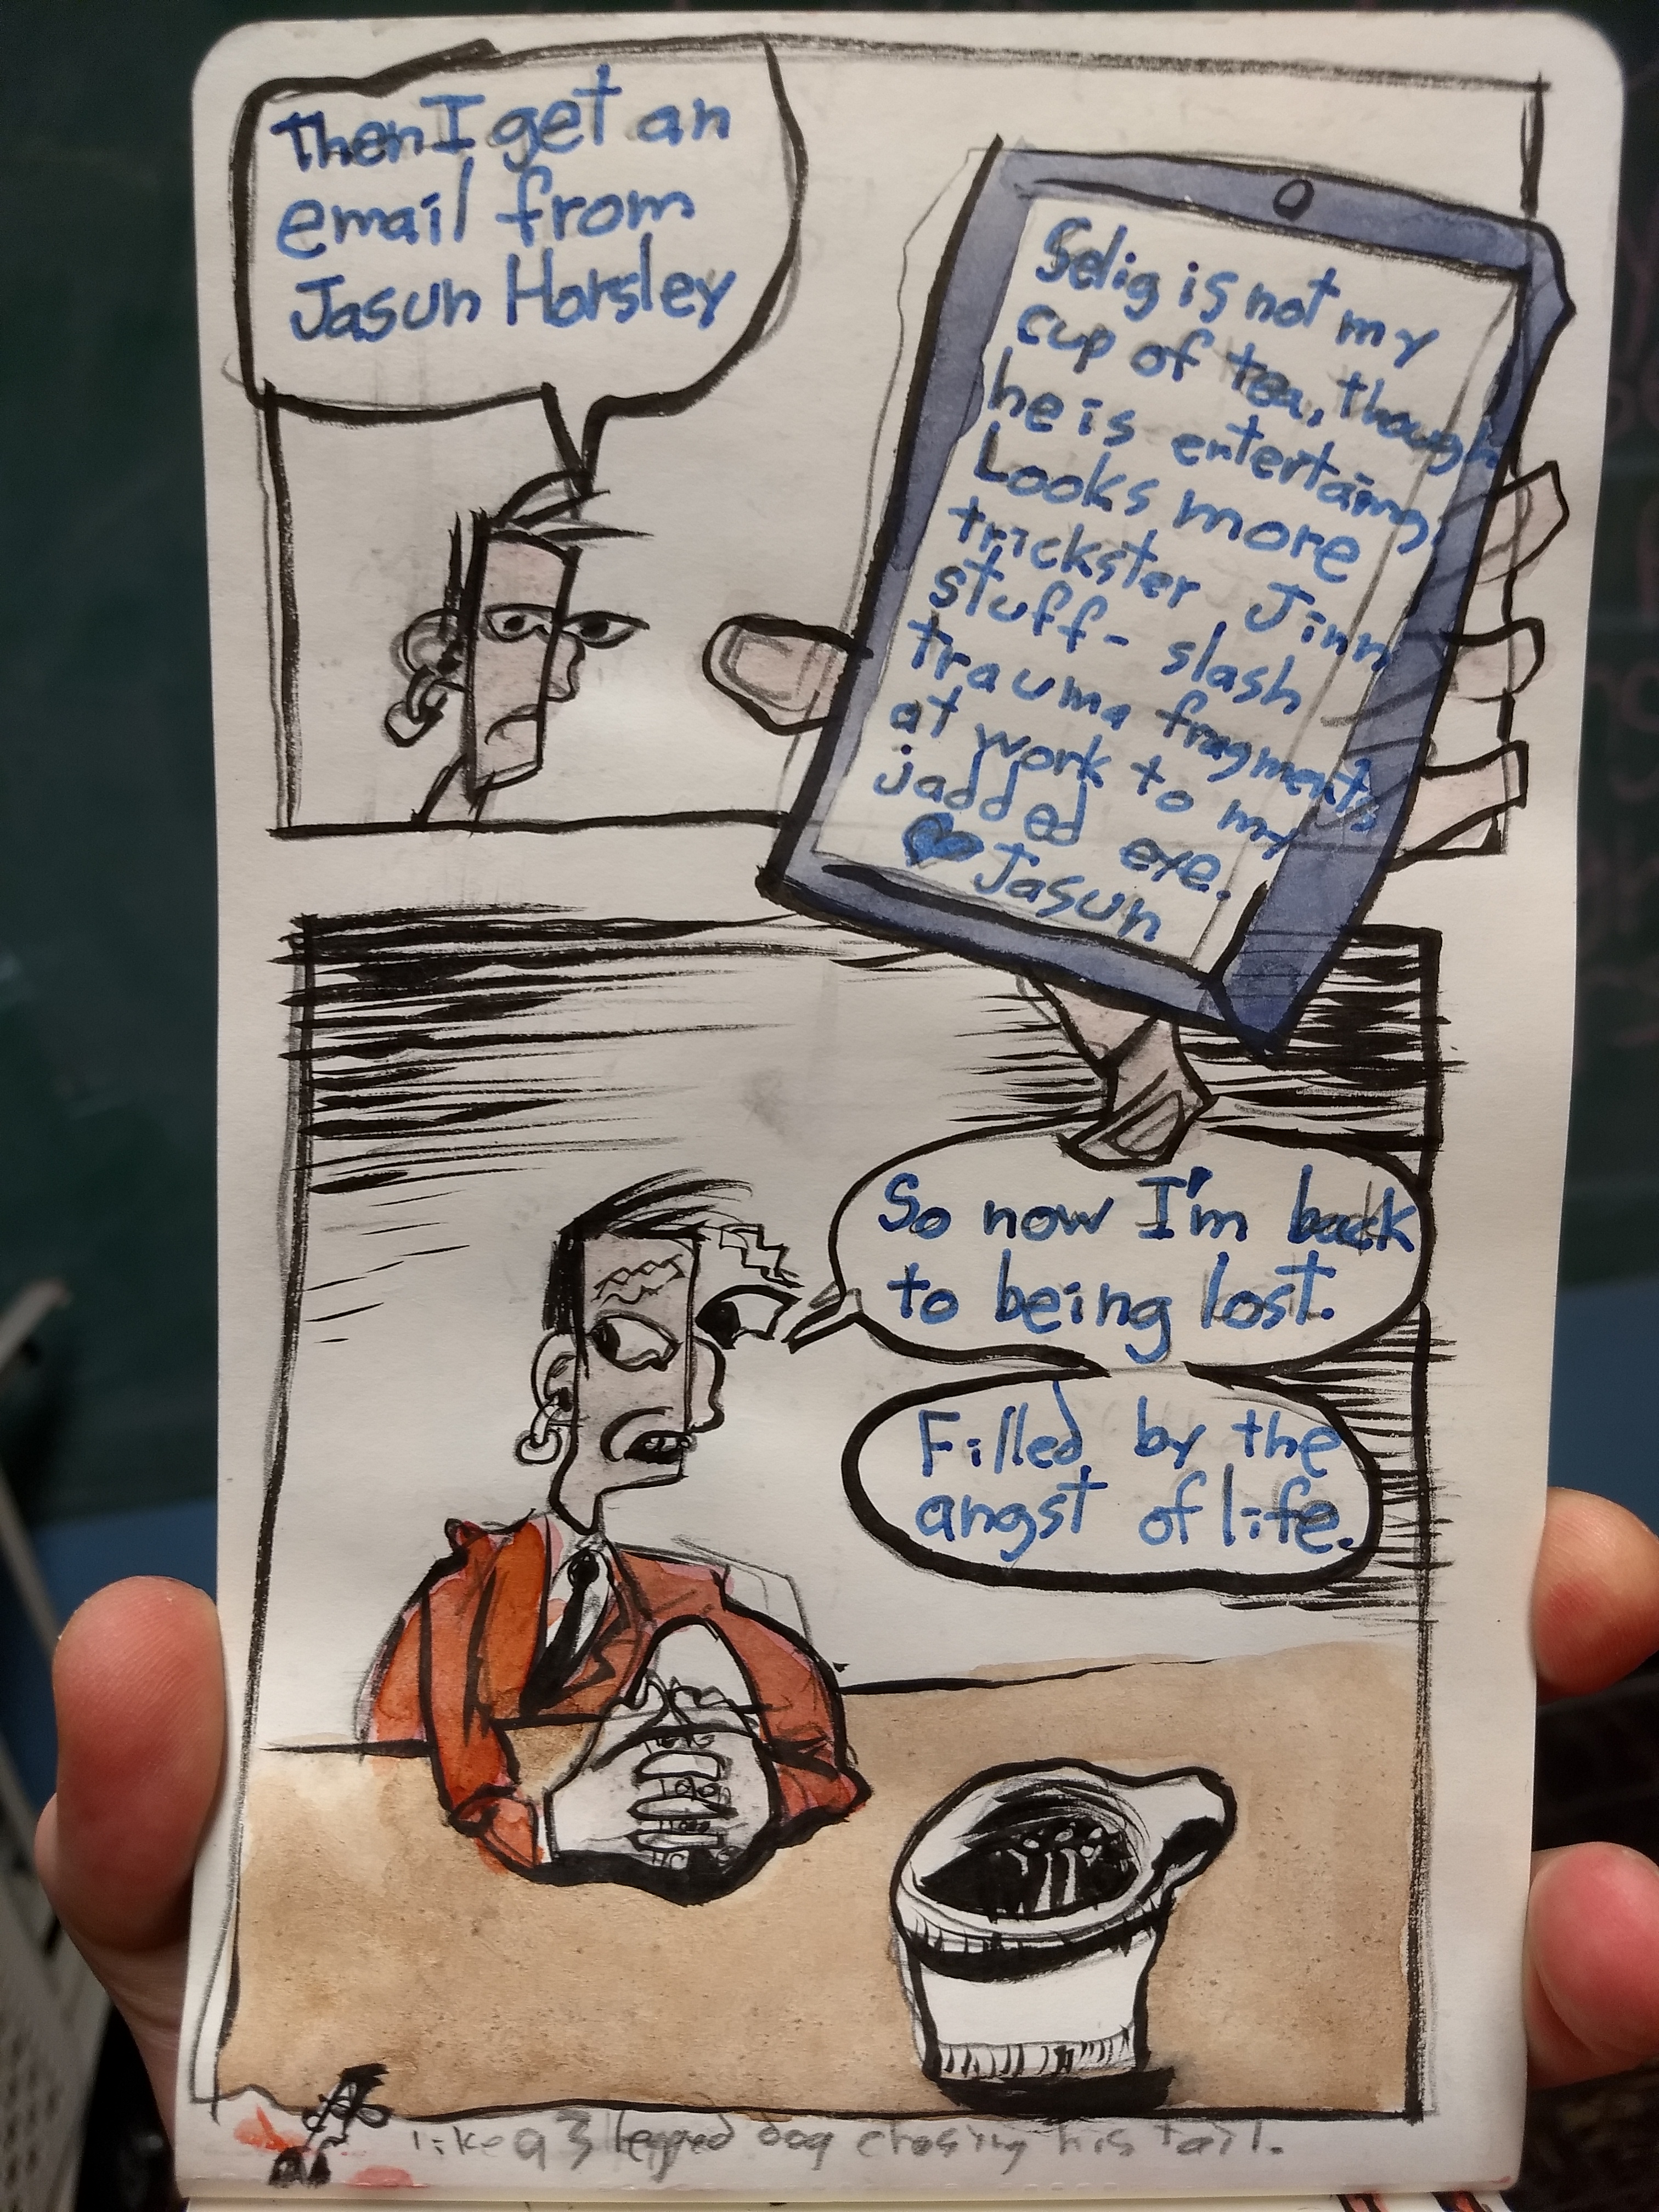 Then I get an
email from
Jasun Horsley
Selig is not my
cup of tea, though
he is entertaing.
Looks more
trickster Jinn
stuff- slash
trauma fragments
at work to my
jadded eye.
♥ Jasun
So now I'm back
to being lost.
Filled by the
angst of life.
like a 3 legged dog chasing his tail.